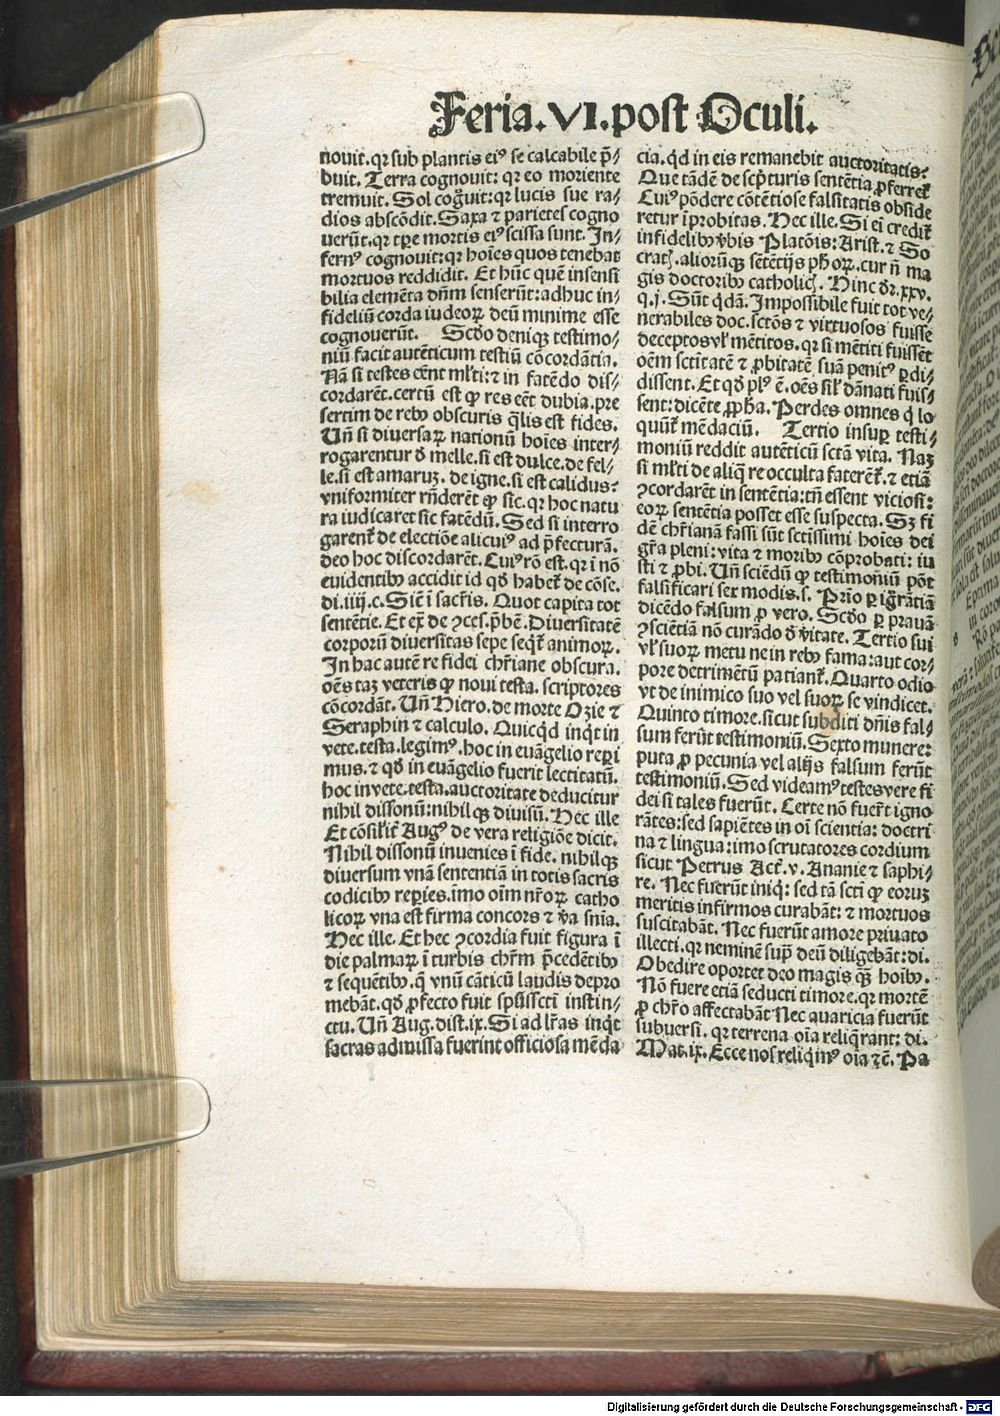 Feria.VI.post Oculi.
nouit.qr sub plantis eiꝰ se calcabile p̄⸗
buit. Terra cognouit: qr eo moriente
tremuit. Sol cog̈uit: qr lucis sue ra⸗
dios abscōdit. Saxa ⁊ parietes cogno
uerūt.qr tꝑe mortis eiꝰ scissa sunt. In⸗
fernꝰ cognouit:qr hoīes quos tenebat
mortuos reddidit. Et hūc quē insensi
bilia elemēta dn̄m senserūt:adhuc in⸗
fideliū corda iudeoꝝ deū minime esse
cognouerūt. Scd̄o deniqꝫ testimo⸗
niū facit autēticum testiū cōcordātia.
Nā si testes eēnt ml̓ti: ⁊ in fatēdo dis⸗
cordarēt.certū est ꝙ res eēt dubia.pre
sertim de rebꝰ obscuris q̄lis est fides.
Vn̄ si diuersaꝝ nationū hoīes inter⸗
rogarentur d̓ melle.si est dulce.de fel⸗
le.si est amaruꝫ. de igne.si est calidus:
vniformiter rn̄derēt ꝙ sic.qr hoc natu
ra iudicaret sic fatēdū. Sed si interro
garent̄ de electiōe alicuiꝰ ad p̄fecturā.
deo hoc discordarēt. Cuiꝰ rō est.qr ī nō
euidentibꝰ accidit id qd̓ habet̄ de cōse.
di.iiij.c. Sic̄ ī sacr̄is. Quot capita tot
sentētie. Et ex̄ de ꝯces.p̄bē. Diuersitatē
corporū diuersitas sepe seq̄t̄ animoꝝ.
In hac autē re fidei chr̄iane obscura.
oēs taꝫ veteris ꝙ noui testa. scriptores
cōcordāt. Vn̄ Hiero. de morte Ozie ⁊
Seraphin ⁊ calculo. Quicq̄d inq̇t in
vete.testa.legimꝰ.hoc in euāgelio reperi
mus.⁊ qd̓ in euāgelio fuerit lectitatū.
hoc in vete.testa.auctoritate deducitur
nihil dissonū:nihil qꝫ diuisū. Hec ille
Et cōsil̓it̓ Augꝰ de vera religiōe dicit.
Nihil dissonū inuenies ī fide. nihilqꝫ
diuersum vnā sententiā in totis sacris
codicibꝰ reꝑies.īmo oīm nr̄oꝝ catho
licoꝝ vna est firma concors ⁊ v̓a sn̄ia.
Hec ille. Et hec ꝯcordia fuit figura ī
die palmaꝝ ī turbis chr̄m p̄cedētibꝰ
⁊ sequētibꝰ.q̄ vnū cāticū laudis depro
mebāt.qd̓ ꝓfecto fuit sp̄ūssctī instin⸗
ctu. Vn̄ Aug.dist.ix. Si ad lr̄as inq̇t
sacras admissa fuerint officiosa mēda
cia.q̇d in eis remanebit auctoritatis:
Que tādē de scp̄turis sentētia ꝓferret̄
Cuiꝰ pōdere cōtētiose falsitatis obside
retur īprobitas. Hec ille. Si ei credit̄
infidelibꝰ v̓bis Platōis: Arist. ⁊ So
crat̄. aliorūqꝫ sētētijs ph̄oꝝ.cur n̄ ma
gis doctoribꝰ catholic̄. Hinc dr̄.xxv.
q.j. Sūt q̇dā. Impossibile fuit tot ve⸗
nerabiles doc.sctōs ⁊ virtuosos fuisse
deceptos vl̓ mētitos.qr si mētiti fuissēt
oēm sctītatē ⁊ ꝓbitatē suā penitꝰ ꝑdi⸗
dissent. Et qd̓ plꝰ ē. oēs sil̓ dānati fuis⸗
sent:dicēte ꝓph̄a. Perdes omnes q̇ lo
quūt̄ mēdaciū. Tertio insuꝑ testi⸗
moniū reddit autēticū sctā vita. Naꝫ
si ml̓ti de aliq̄ re occulta faterēt̄.⁊ etiā
ꝯcordarēt in sentētia:tn̄ essent viciosi:
eoꝝ sentētia posset esse suspecta. Sꝫ fi
dē chr̄ianā fassi sūt sctissimi hoīes dei
gr̄a pleni: vita ⁊ moribꝰ cōprobati: iu
sti ⁊ ꝓbi. Vn̄ sciēdū ꝙ testimoniū pōt
falsificari sex modis.s. Prīo ꝑ igrātiā
dicēdo falsum ꝓ vero. Scd̄o ꝑ prauā
ꝯsciētiā nō curādo d̓ v̓itate. Tertio sui
vl̓ suoꝝ metu ne in rebꝰ fama:aut cor⸗
pore detrimētū patiant̄. Quarto odio
vt de inimico suo vel suoꝝ se vindicet.
Quinto timore.sicut subditi dn̄is fal⸗
sum ferūt testimoniū. Sexto munere:
puta ꝓ pecunia vel alijs falsum ferūt
testimoniū. Sed videamꝰ testes vere fi
dei si tales fuerūt. Certe nō fuer̄t igno
rātes:sed sapiētes in oī scientia: doctri
na ⁊ lingua:imo scrutatores cordium
sicut Petrus Act̄.v. Ananie ⁊ saphi⸗
re. Nec fuerūt iniq̇: sed tā sctī ꝙ eoruꝫ
meritis infirmos curabāt: ⁊ mortuos
suscitabāt. Nec fuerūt amore priuato
illecti.qr neminē sup̄ deū diligebāt:di.
Obedire oportet deo magis q̄ꝫ hoībꝰ.
Nō fuere etiā seducti timore.qr mortē
ꝓ chr̄o affectabāt Nec auaricia fuerūt
subuersi. qr terrena oīa reliq̄rant: di.
Mat.ix. Ecce nos reliq̇mꝰ oīa ⁊c̄. Pa
Digitalisierung gefördert durch die Deutsche Forschungsgemeinschaft - DFG